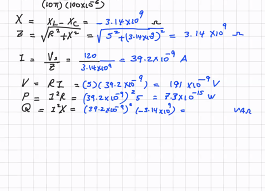 (10π)(100x10⁻⁶)
X = X_L - X_C = -3.14x10⁹ Ω
Z = √R²+X² = √5²+(3.14x10⁹)² = 3.14 x10⁹ Ω
I = Vs/Z = 120/3.14x10⁹ = 39.2x10⁻⁹ A
V = RI = (5)(39.2x10⁻⁹) = 191 x10⁻⁹ V
P = I²R = (39.2x10⁻⁹)² 5 = 7.3x10⁻¹⁵ W
Q = I²X = (39.2x10⁻⁹)² (-3.14x10⁹) = VAR